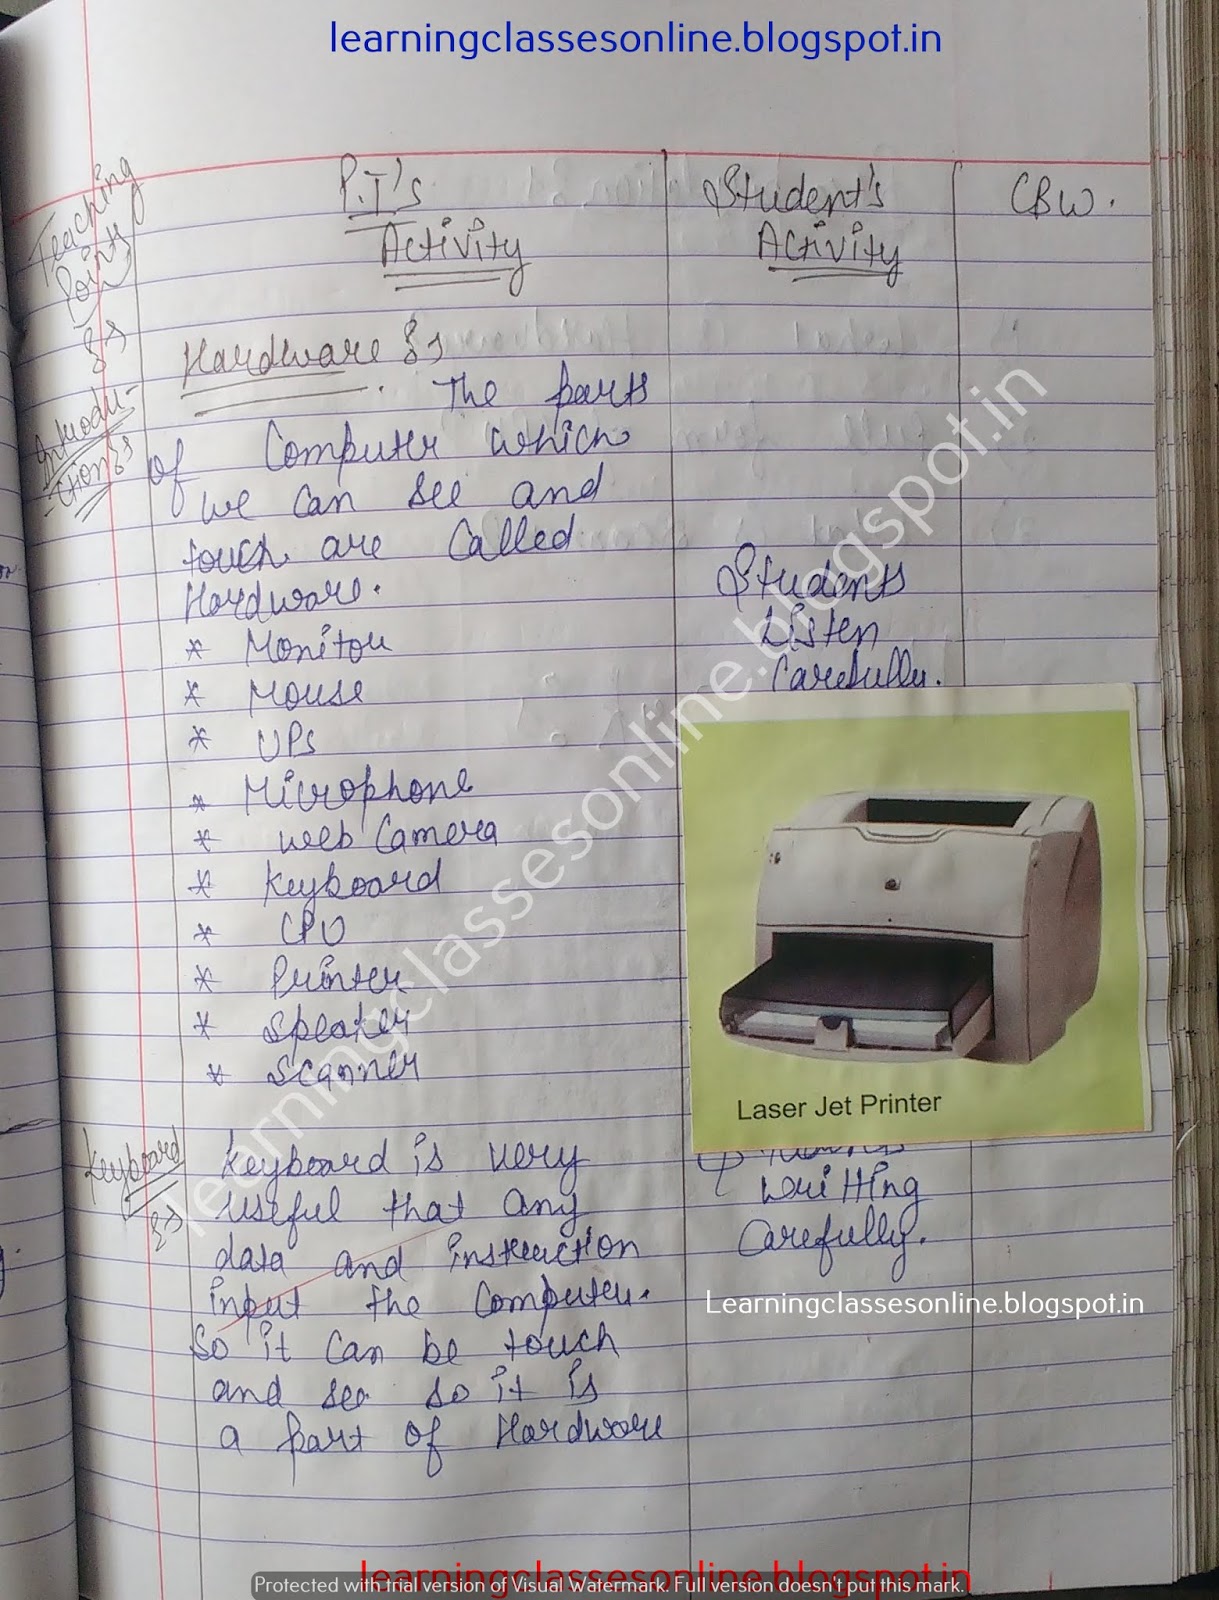 learningclassesonline.blogspot.in
Teaching
Points
P.T's
Activity
Student's
Activity
CBW.
Introdu-
ctions
Hardware :-
The parts
of Computer which
we can see and
touch are Called
Hardware.
* Monitor
* Mouse
* UPs
* Microphone
* Web Camera
* Keyboard
* CPU
* Printer
* Speaker
* Scanner
Students
Listen
Carefully.
Laser Jet Printer
Keyboard
Keyboard is very
useful that any
data and instruction
input the Computer.
So it can be touch
and see so it is
a part of Hardware
writting
Carefully.
learningclassesonline.blogspot.in
Learningclassesonline.blogspot.in
learningclassesonline.blogspot.in
Protected with trial version of Visual Watermark. Full version doesn't put this mark.